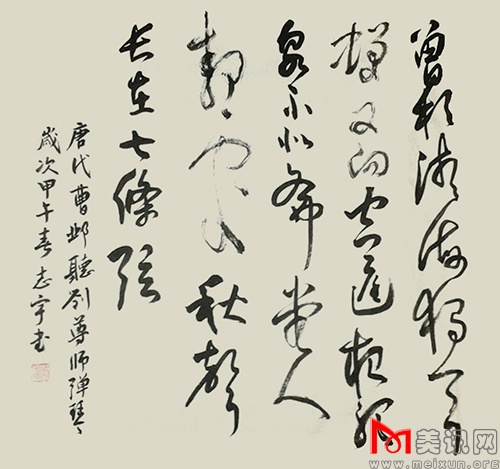 曾於清海獨聞
蟬又向空庭夜聽
泉不似齋堂人
靜處秋聲
長在七條弦
唐代曹邺聽劉尊師彈琴
歲次甲午春志宇书
美讯网
www.meixun.org